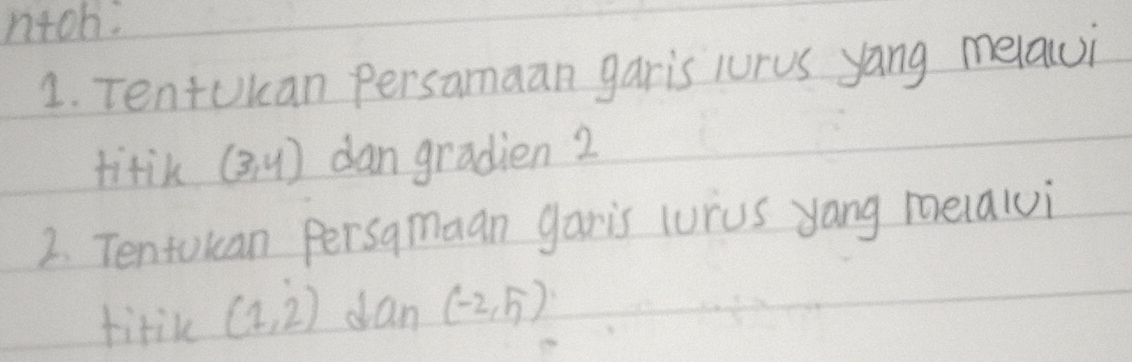 ntoh:
1. Tentukan Persamaan garis lurus yang melalui
titik (3,4) dan gradien 2
2. Tentukan Persamaan garis lurus yang melalui
titik (1,2) dan (-2,5)